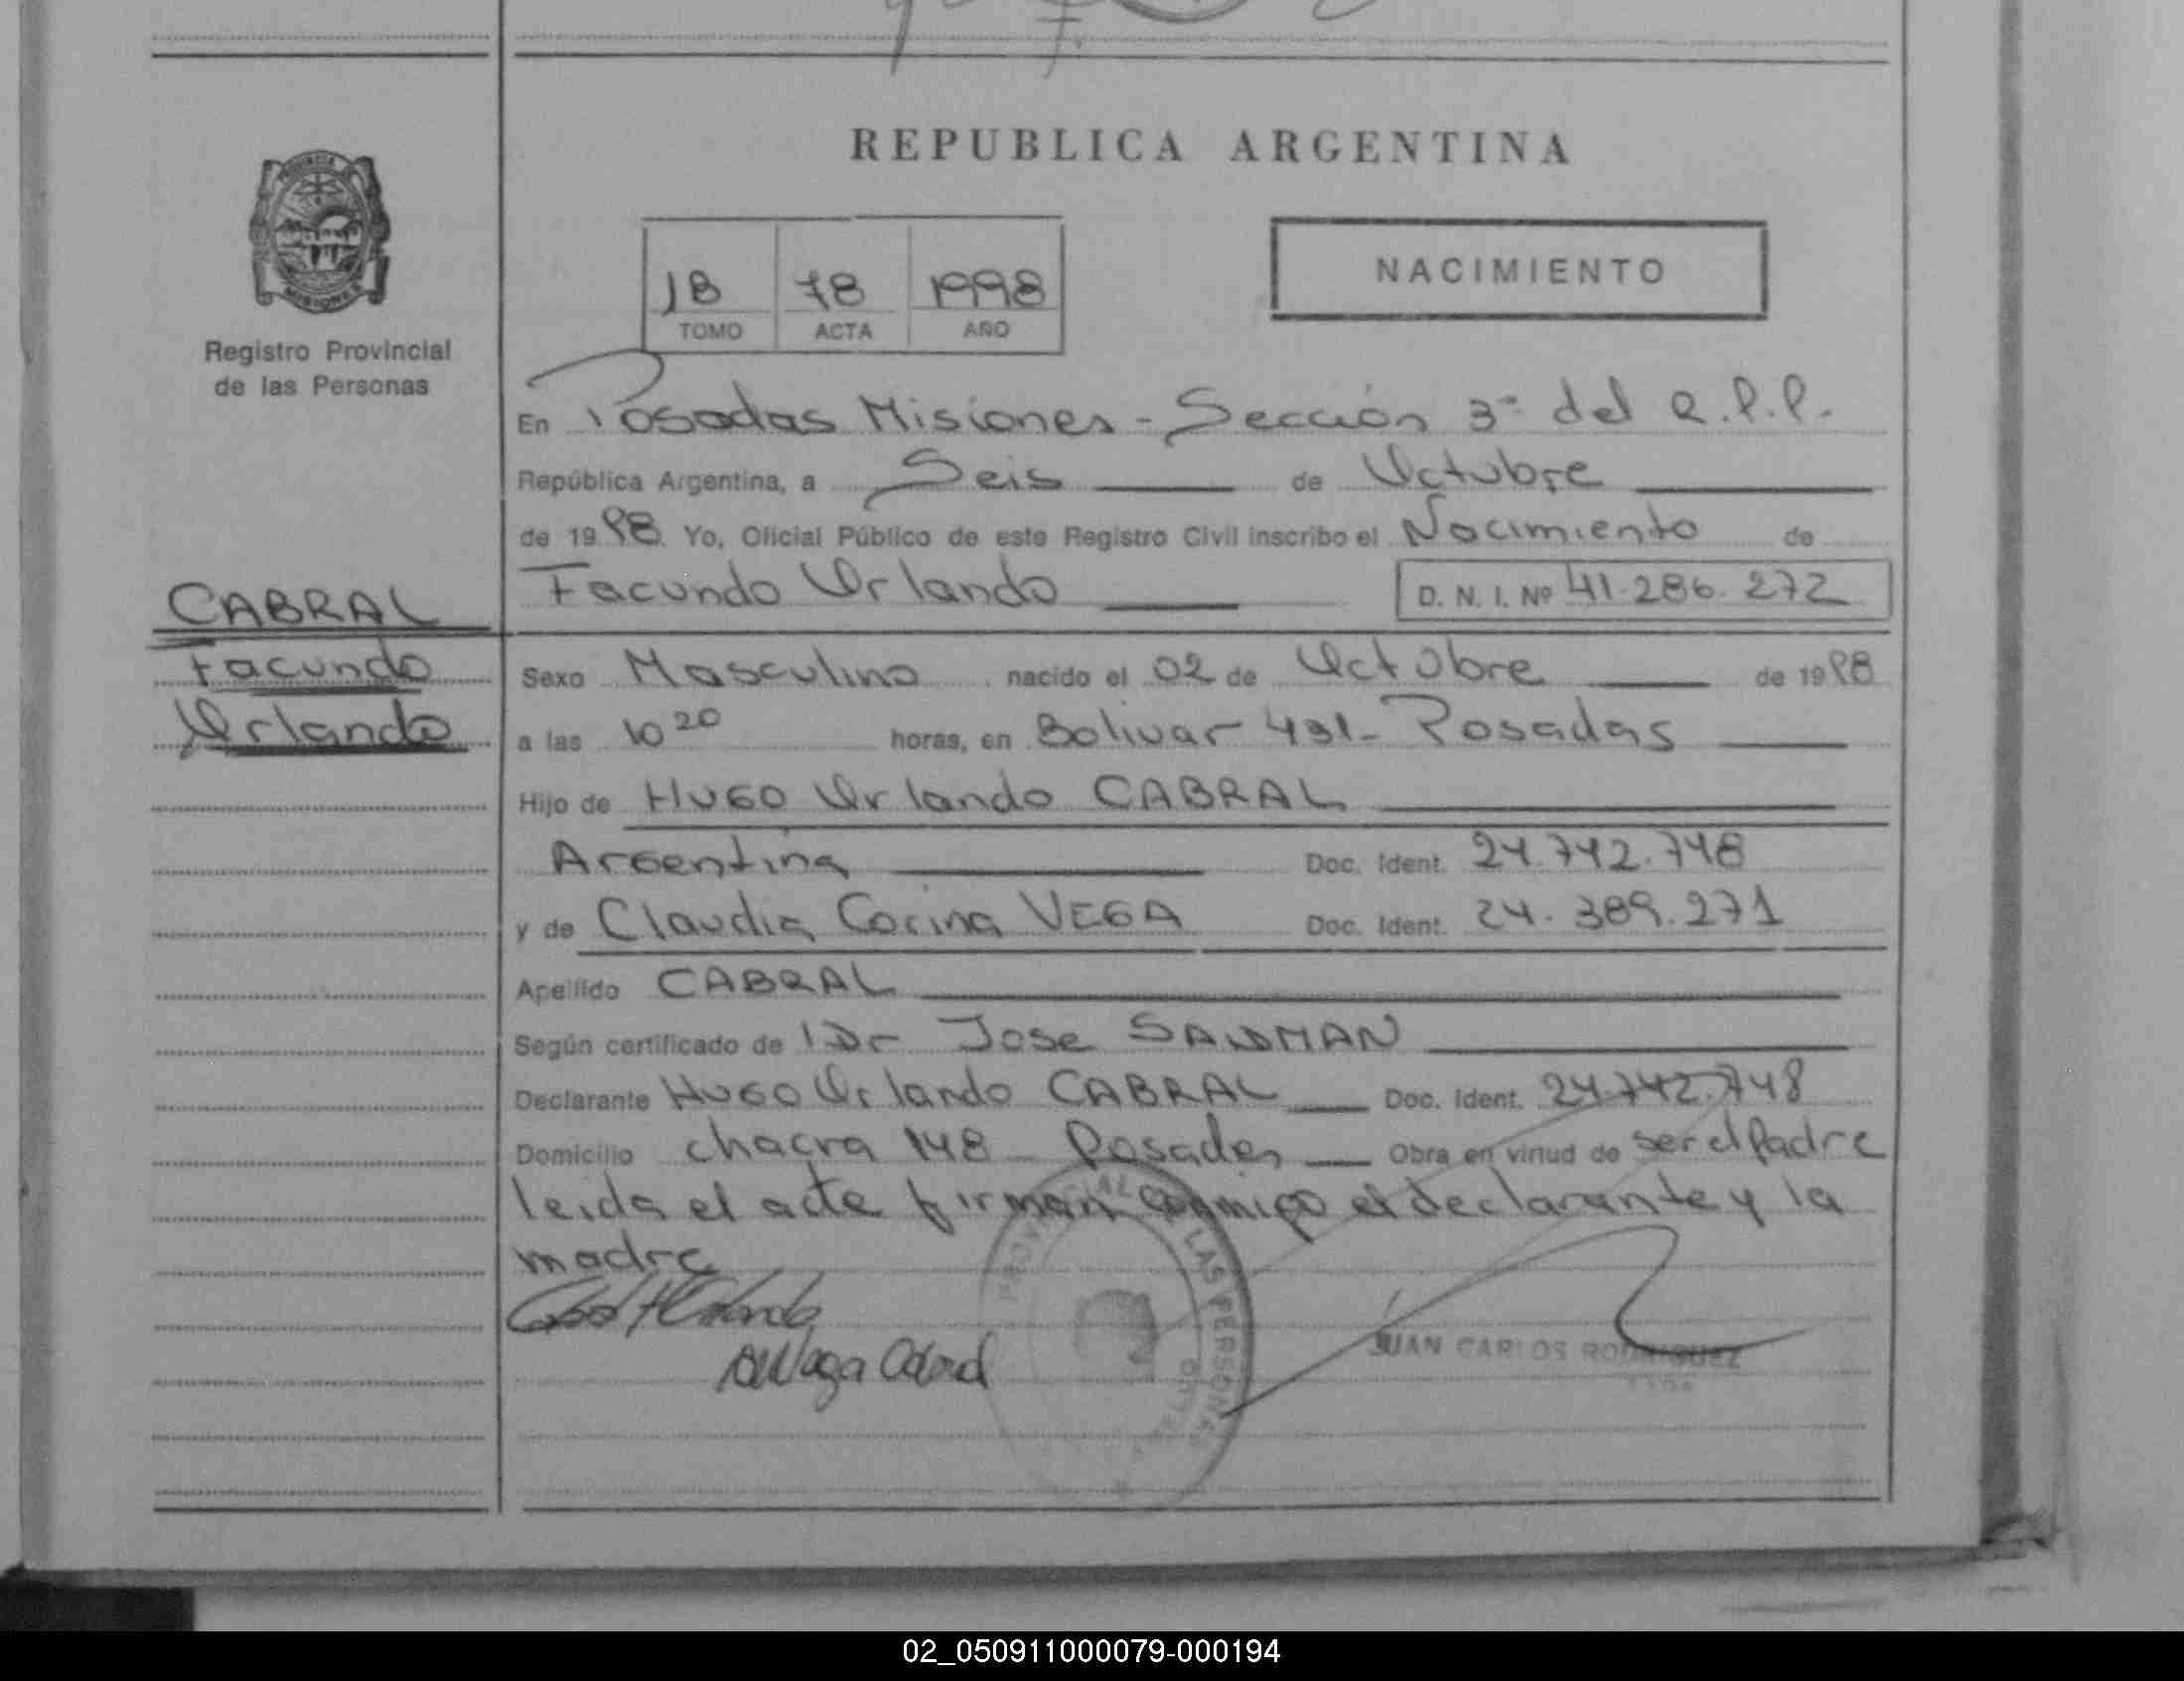 REPUBLICA ARGENTINA
NACIMIENTO
1B 78 1998
TOMO ACTA AÑO
PROVINCIA
MISIONES
Registro Provincial
de las Personas
En Posadas Misiones - Sección 3ª del R.P.P.
República Argentina, a Seis de Octubre
de 1998. Yo, Oficial Público de este Registro Civil inscribo el Nacimiento de
Facundo Orlando D. N. I. Nº 41.286.272
CABRAL
Facundo
Orlando
Sexo Masculino nacido el 02 de Octubre de 1998
a las 10 20 horas, en Bolivar 431- Posadas
Hijo de Hugo Orlando CABRAL
Argentina Doc. Ident. 24.742.748
y de Claudia Corina VEGA Doc. Ident. 24.389.271
Apellido CABRAL
Según certificado de Dr Jose
Declarante Hugo Orlando CABRAL Doc. Ident. 24.742.748
Domicilio chacra 148 Posadas Obra en virtud de ser el Padre
leida el acta firman conmigo el declarante y la
madre
JUAN CARLOS RODRIGUEZ
02_050911000079-000194